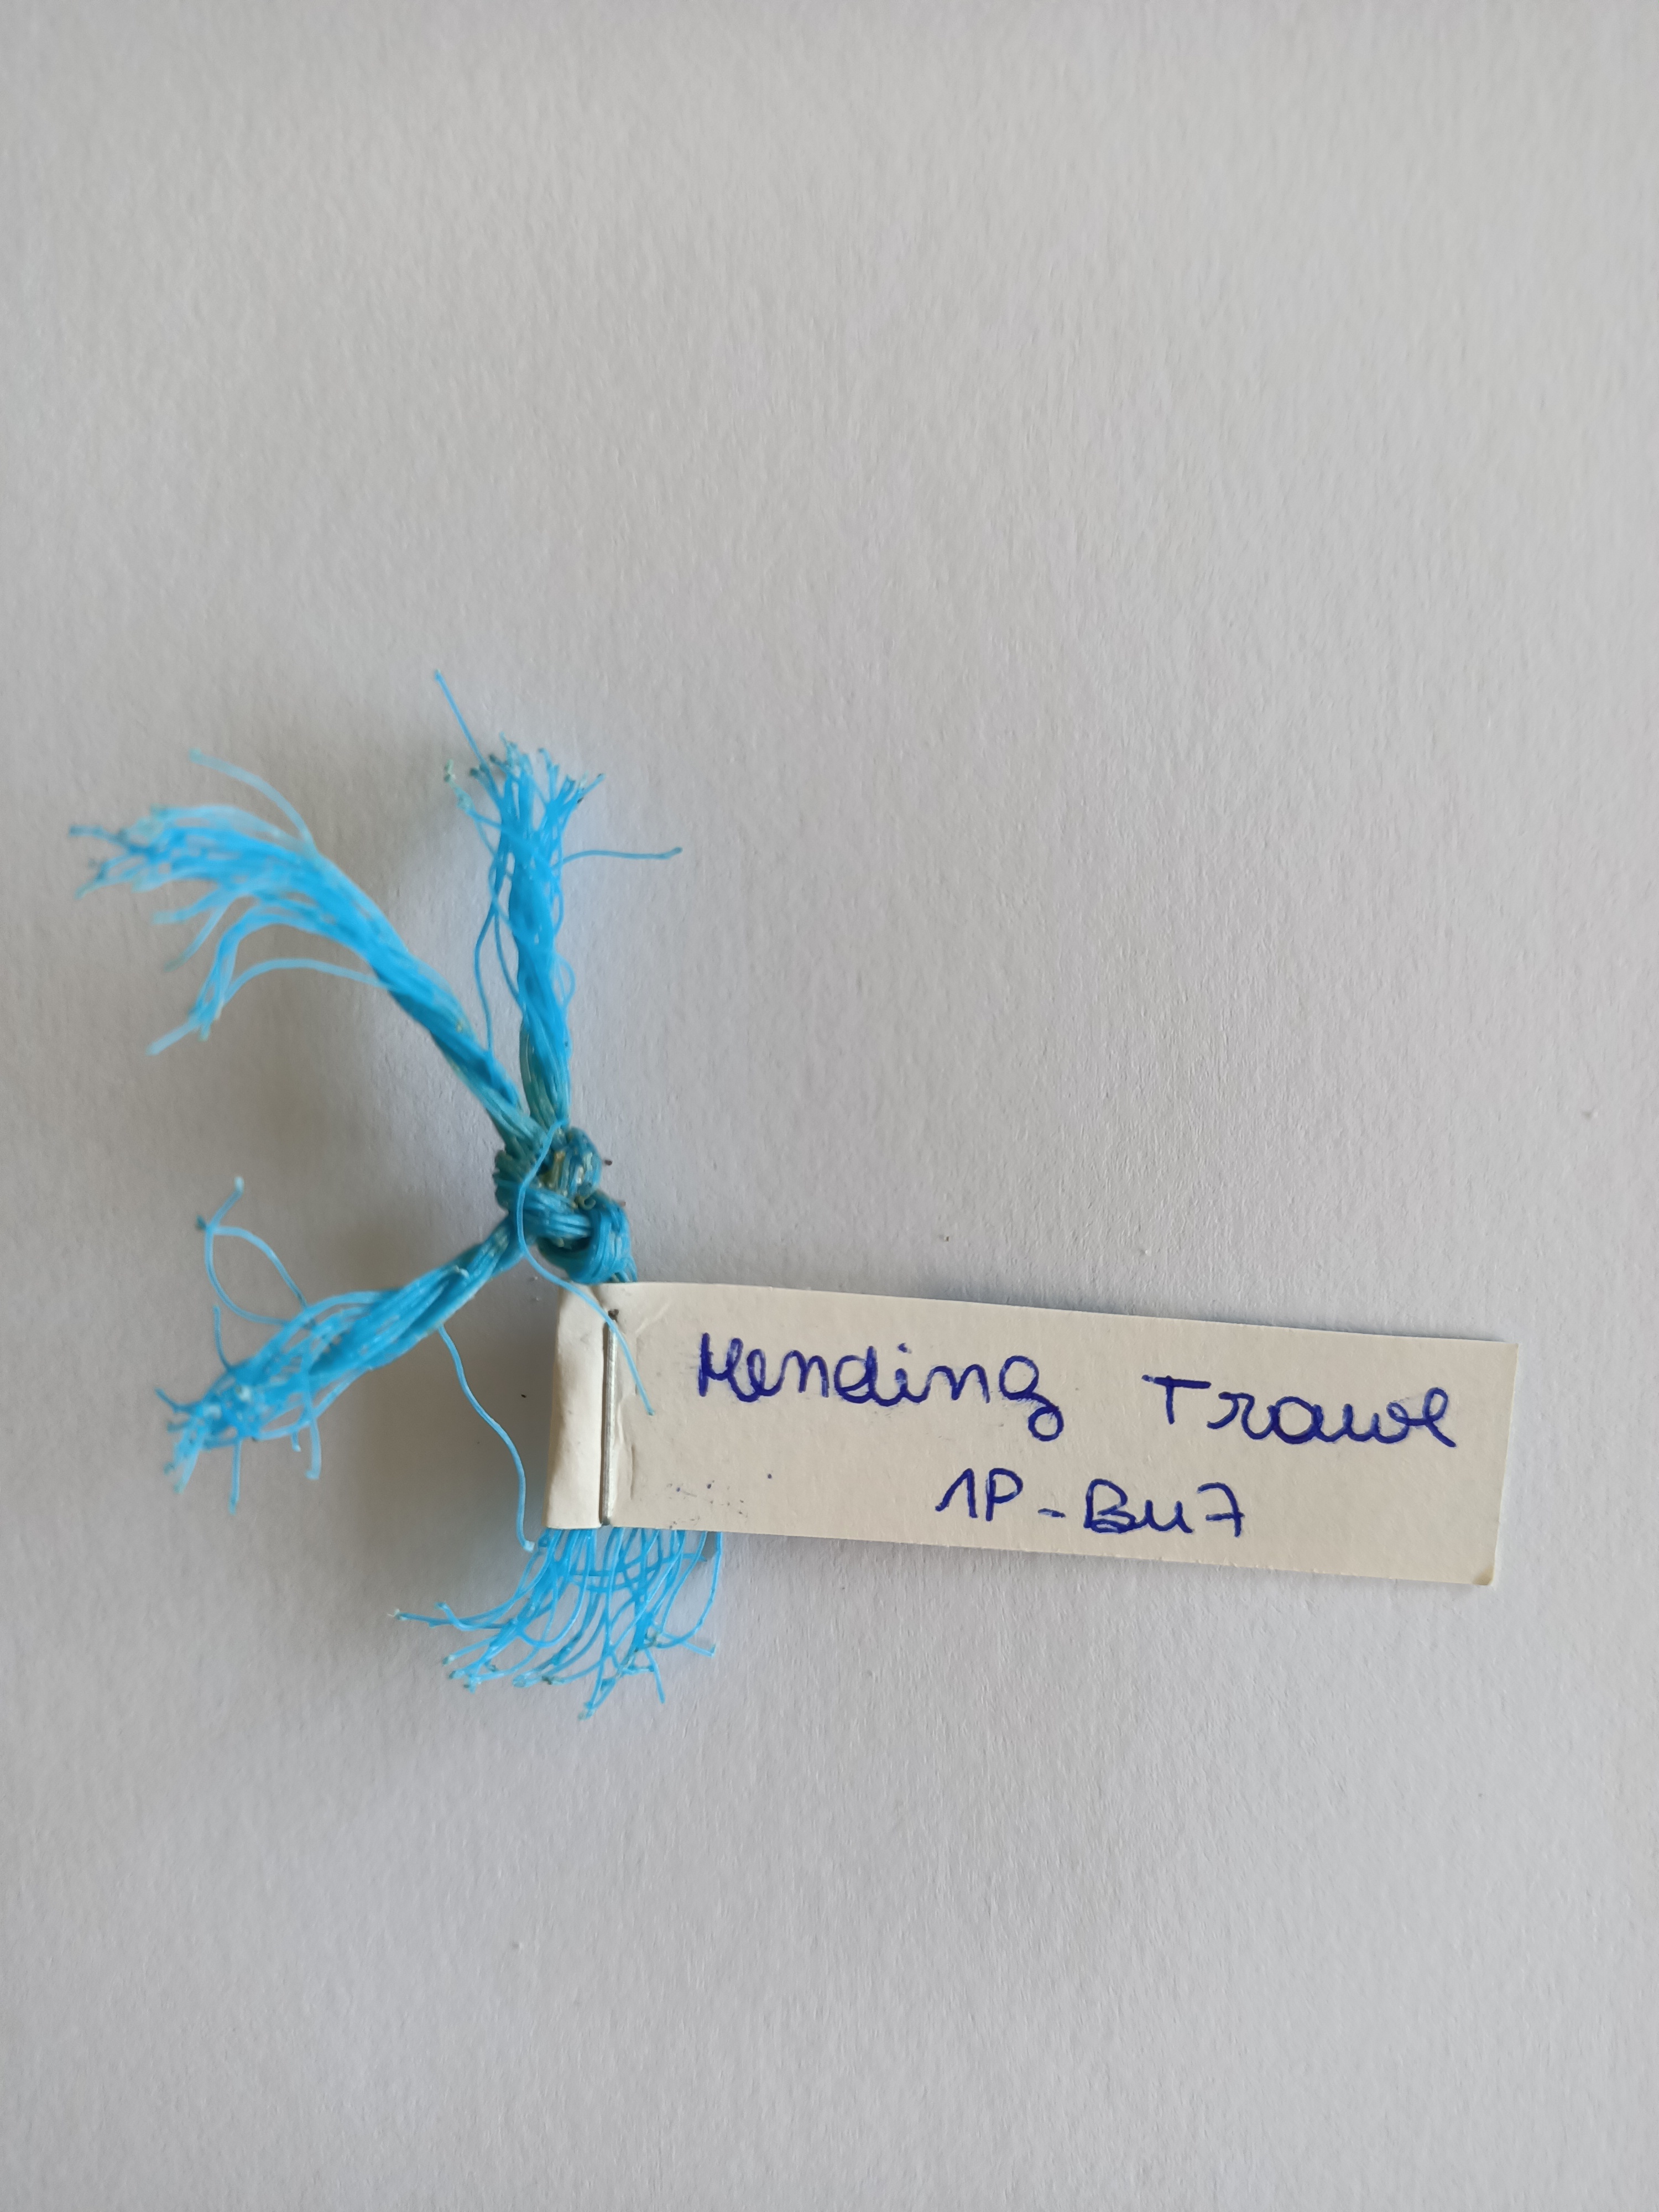 Mending Trawl
1P-Bu7